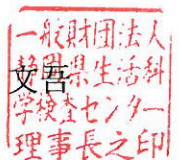 一般財団法人
静岡県生活科
学検査センター
理事長之印
文吾